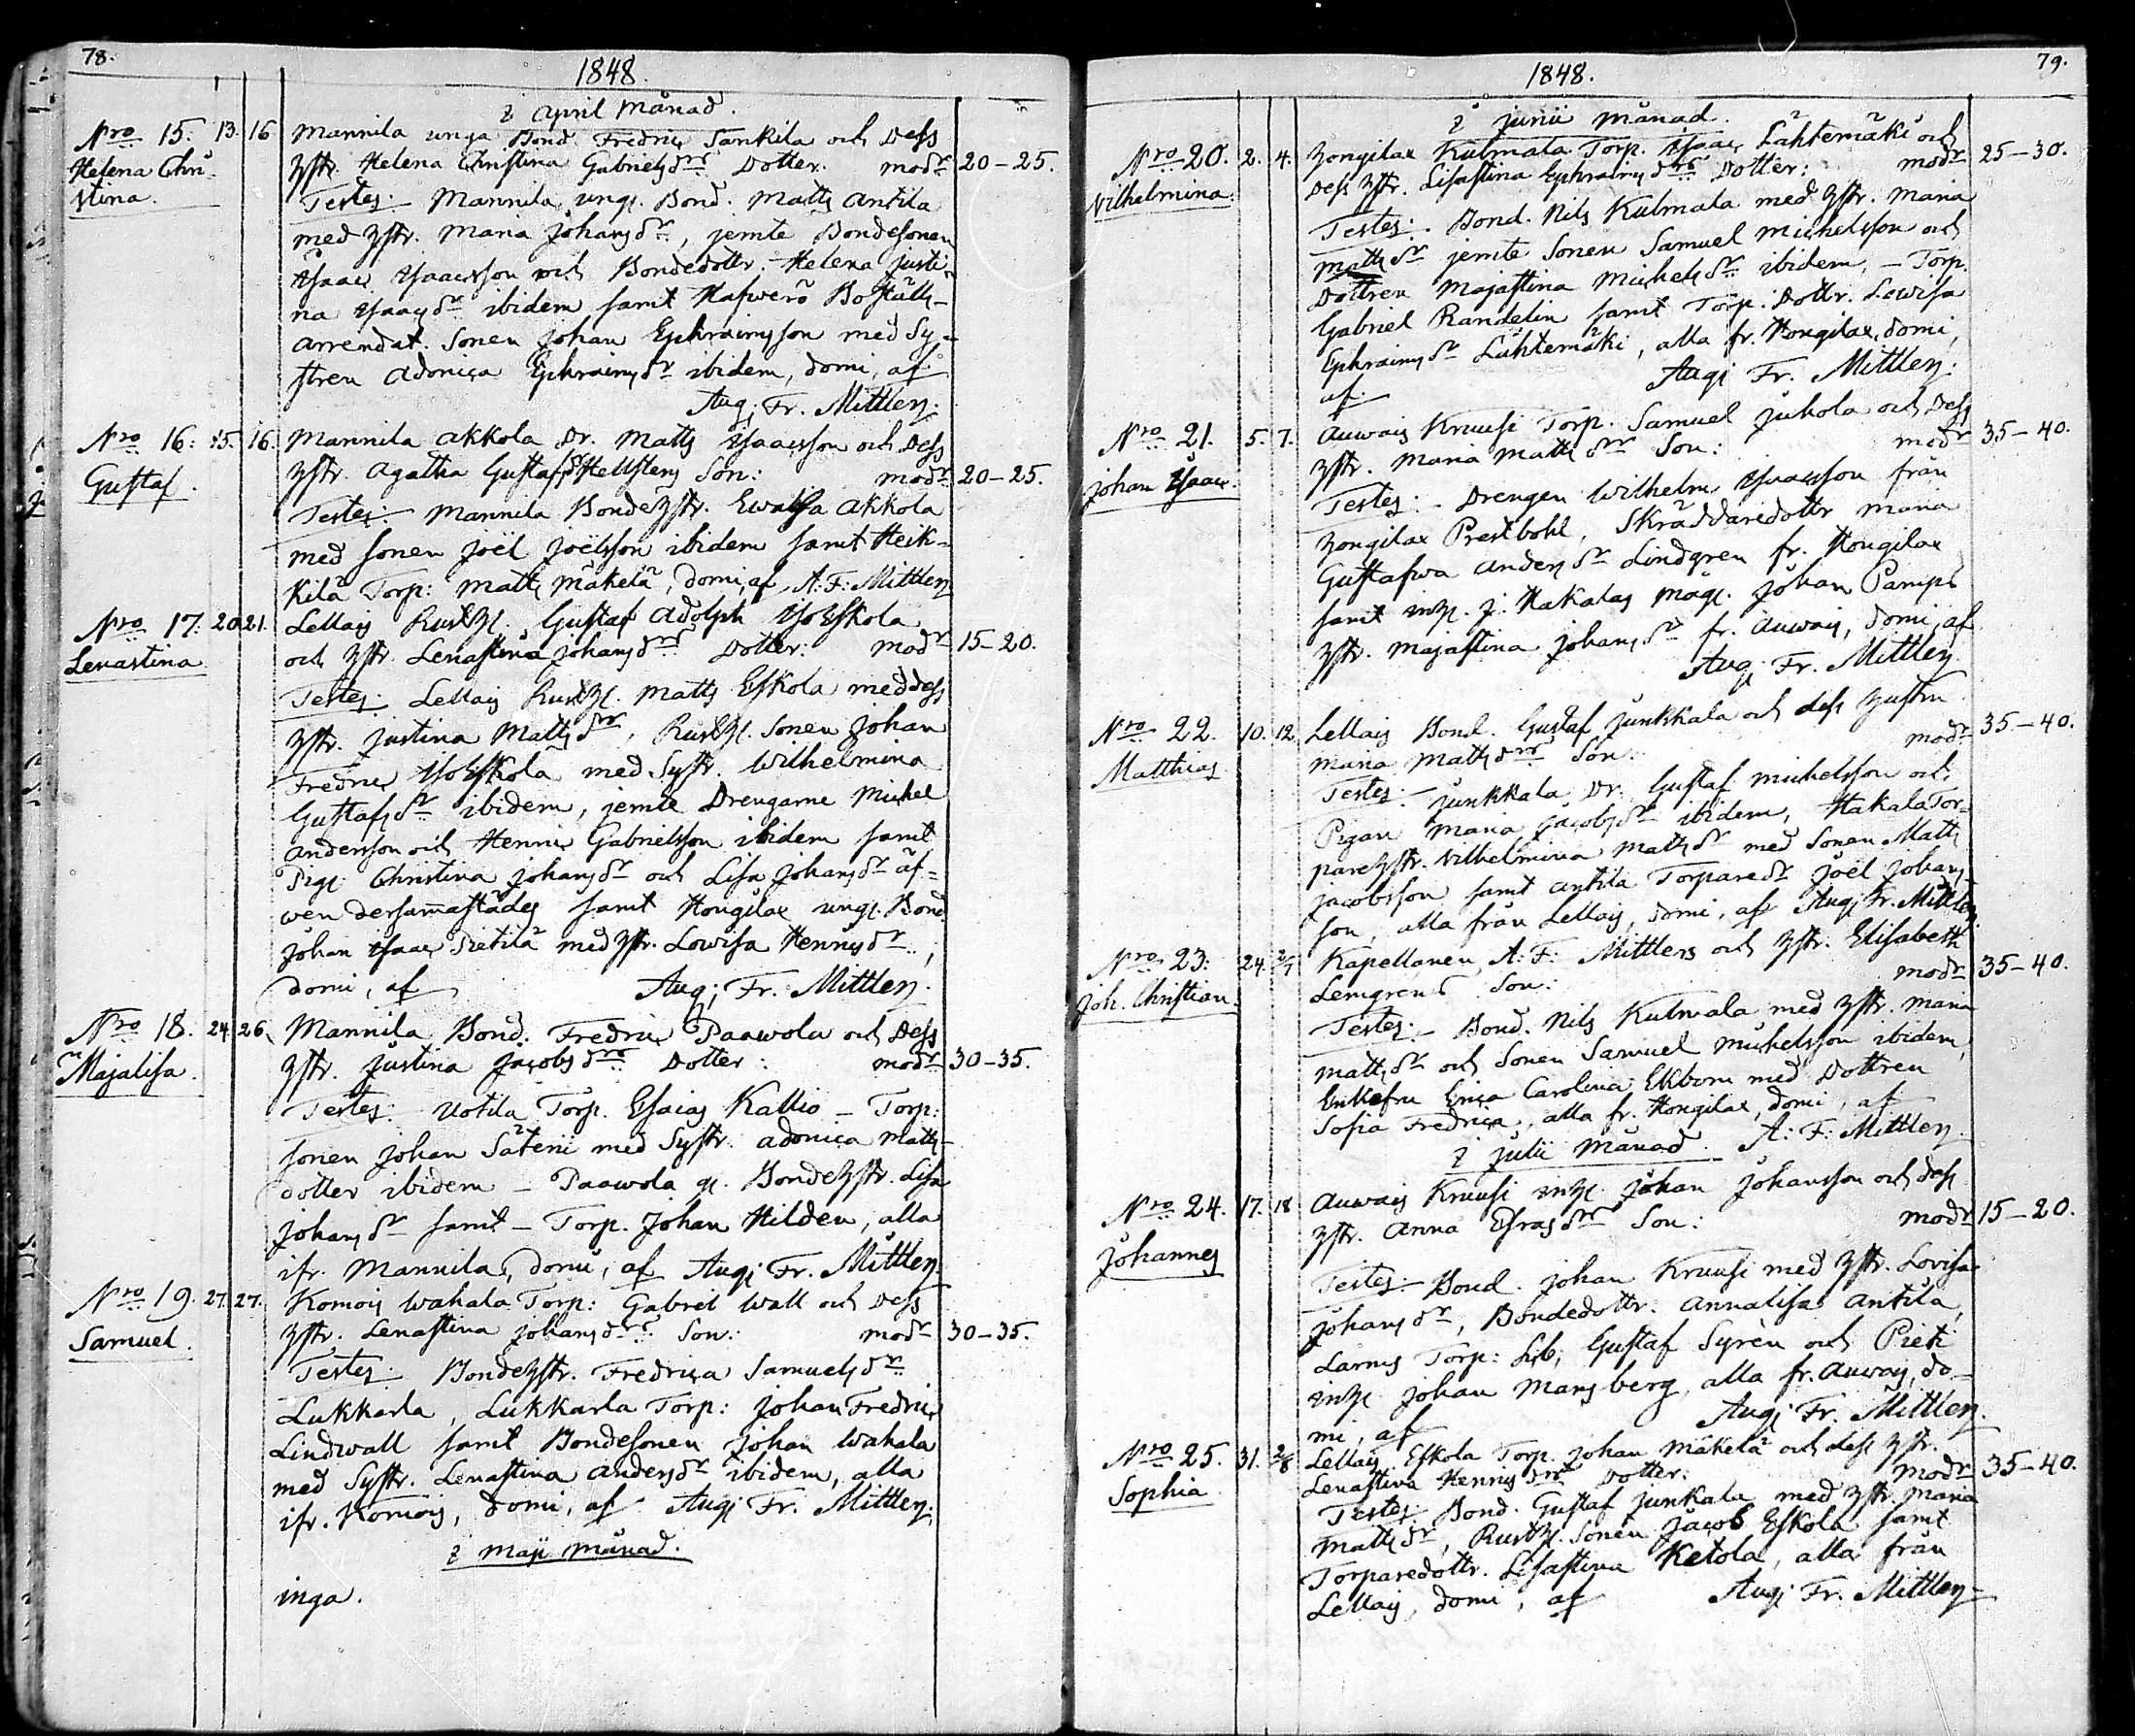 78.
1848.
i April Månad.
Nro 15. 13. 16. Mannila unga Bond. Fredric Tankila och Dess
Helena Chri- hstr. Helena Christina Gabrielsdrs Dotter: modr 20-25.
stina. Testes: Mannila ung. Bond. Matts Antila
med hstr. Maria Johansdr, jemte Bondesonen
Isaac Isaacsson och Bondedottr. Helena Justi-
na Isaacsdr ibidem samt Hafwerö Boställs-
arrendat. Sonen Johan Ephraimsson med Sy-
stren Adonica Ephraimsdr ibidem, domi, af
Aug: Fr. Mittler.
Nro 16: 15. 16. Mannila Akkola Dr. Matts Isaacsson och Dess
Gustaf. hstr. Agatha Gustafsdr Hellstens Son: modr 20-25.
Testes: Mannila Bondehstr. Ewalisa Akkola
med sonen Joël Joëlsson ibidem samt Heik-
kilä Torp: Matts Mäkelä, domi, af A: F: Mittler
Nro 17: 20. 21. Lellais Rusth. Gustaf Adolph IsoEskola
Lenastina och hstr. Lenastina Johansdrs Dotter: modr 15-20.
Testes: Lellais Rusth. Matts Eskola med dess
hstr. Justina Mattsdr, Rusth. Sonen Johan
Fredric IsoEskola med Systr. Wilhelmina
Gustafsdr ibidem, jemte Drengarne Michel
Andersson och Henric Gabrielsson ibidem samt
Pig: Christina Johansdr och Lisa Johansdr äf-
wen dersammastädes samt Hongilax ung. Bond.
Johan Isaac Pietilä med hstr. Lowisa Henricsdr,
domi, af Aug: Fr. Mittler.
Nro 18. 24. 26. Mannila Bond. Fredric Paawola och Dess
Majalisa. hstr. Justina Jacobsdrs Dotter: modr 30-35.
Testes: Uotila Torp. Esaias Kallio - Torp:
sonen Johan Säteri med Systr. Adonica Matts-
dotter ibidem - Paawola g. Bondehstr. Lisa
Johansdr samt - Torp. Johan Hilden, alla
ifr. Mannila, domi, af Aug: Fr. Mittler.
Nro 19. 27. 27. Komois Wahala Torp: Gabriel Wall och Dess
Samuel. hstr. Lenastina Johansdrs Son: modr 30-35.
Testes: Bondehstr. Fredrica Samuelsdr
Lukkarla, Lukkarla Torp: Johan Fredric
Lindwall samt Bondesonen Johan Wahala
med Systr. Lenastina Andersdr ibidem, alla
ifr. Komois, domi, af Aug: Fr. Mittler.
i Maji Månad.
inga.
79.
1848.
i Junii Månad.
Nro 20. 2. 4. Hongilax Kulmala Torp. Isaac Lähtemäki och
Vilhelmina. Dess hstr. Lisastina Ephraimsdrs Dotter: modr 25-30.
Testes: Bond. Nils Kulmala med hstr. Maria
Mattsdr jemte Sonen Samuel Michelsson och
Dottren Majastina Michelsdr ibidem, - Torp.
Gabriel Randelin samt Torp: Dottr. Lowisa
Ephraimsdr Lähtemäki, alla fr. Hongilax, domi,
af Aug: Fr. Mittler.
Nro 21. 5. 7. Auwais Kruusi Torp. Samuel Juhola och Dess
Johan Isaac. hstr. Maria Mattsdrs Son: modr 35-40.
Testes: Drengen Wilhelm Isaacsson från
Hongilax Prestbohl, Skräddaredottr Maria
Gustafwa Andersdr Lindgren fr. Hongilax
samt inh. j: Hakalas måg. Johan Pamps
hstr. Majastina Johansdr fr. Auwais, domi, af
Aug: Fr. Mittler
Nro 22. 10. 12. Lellais Bond. Gustaf Junkkala och dess hustru
Matthias Maria Mattsdrs Son: modr 35-40.
Testes: Junkkala Dr. Gustaf Michelsson och
Pigan Maria Jacobsdr ibidem, Hakala Tor-
parehstr. Vilhelmina Mattsdr med Sonen Matts
Jacobsson samt Antila Torparedr Joël Johans-
son, alla från Lellais, domi, af Aug: Fr. Mittler.
Nro 23: 24. 2/7 Kapellanen A: F: Mittlers och hstr. Elisabeth
Joh. Christian. Lemgrens Son: modr 35-40.
Testes: Bond. Nils Kulmala med hstr. Maria
Mattsdr och Sonen Samuel Michelsson ibidem,
Enkefru Erica Carolina Ekbom med Dottren
Sofia Fredrica, alla fr. Hongilax, domi, af
i Julii Månad. A: F: Mittler.
Nro 24. 17. 18 Auwais Kruusi inh. Johan Johansson och dess
Johannes hstr. Anna Esrasdrs Son: modr 15-20.
Testes: Bond. Johan Kruusi med hstr. Lovisa
Johansdr, Bondedottr. Annalisa Antila,
Larus Torp: Lib: Gustaf Syrèn och Pieti
inh. Johan Mansberg, alla fr. Auwais, do-
mi, af Aug: Fr. Mittler.
Nro 25. 31. 2/8 Lellais Eskola Torp. Johan Mäkelä och dess hstr.
Sophia Lenastina Henricsdrs Dotter: modr 35-40.
Testes: Bond. Gustaf Junkala med hstr. Maria
Mattsdr, Rusth. Sonen Jacob Eskola samt
Torparedottr. Lisastina Ketola, alla från
Lellais, domi, af Aug: Fr. Mittler